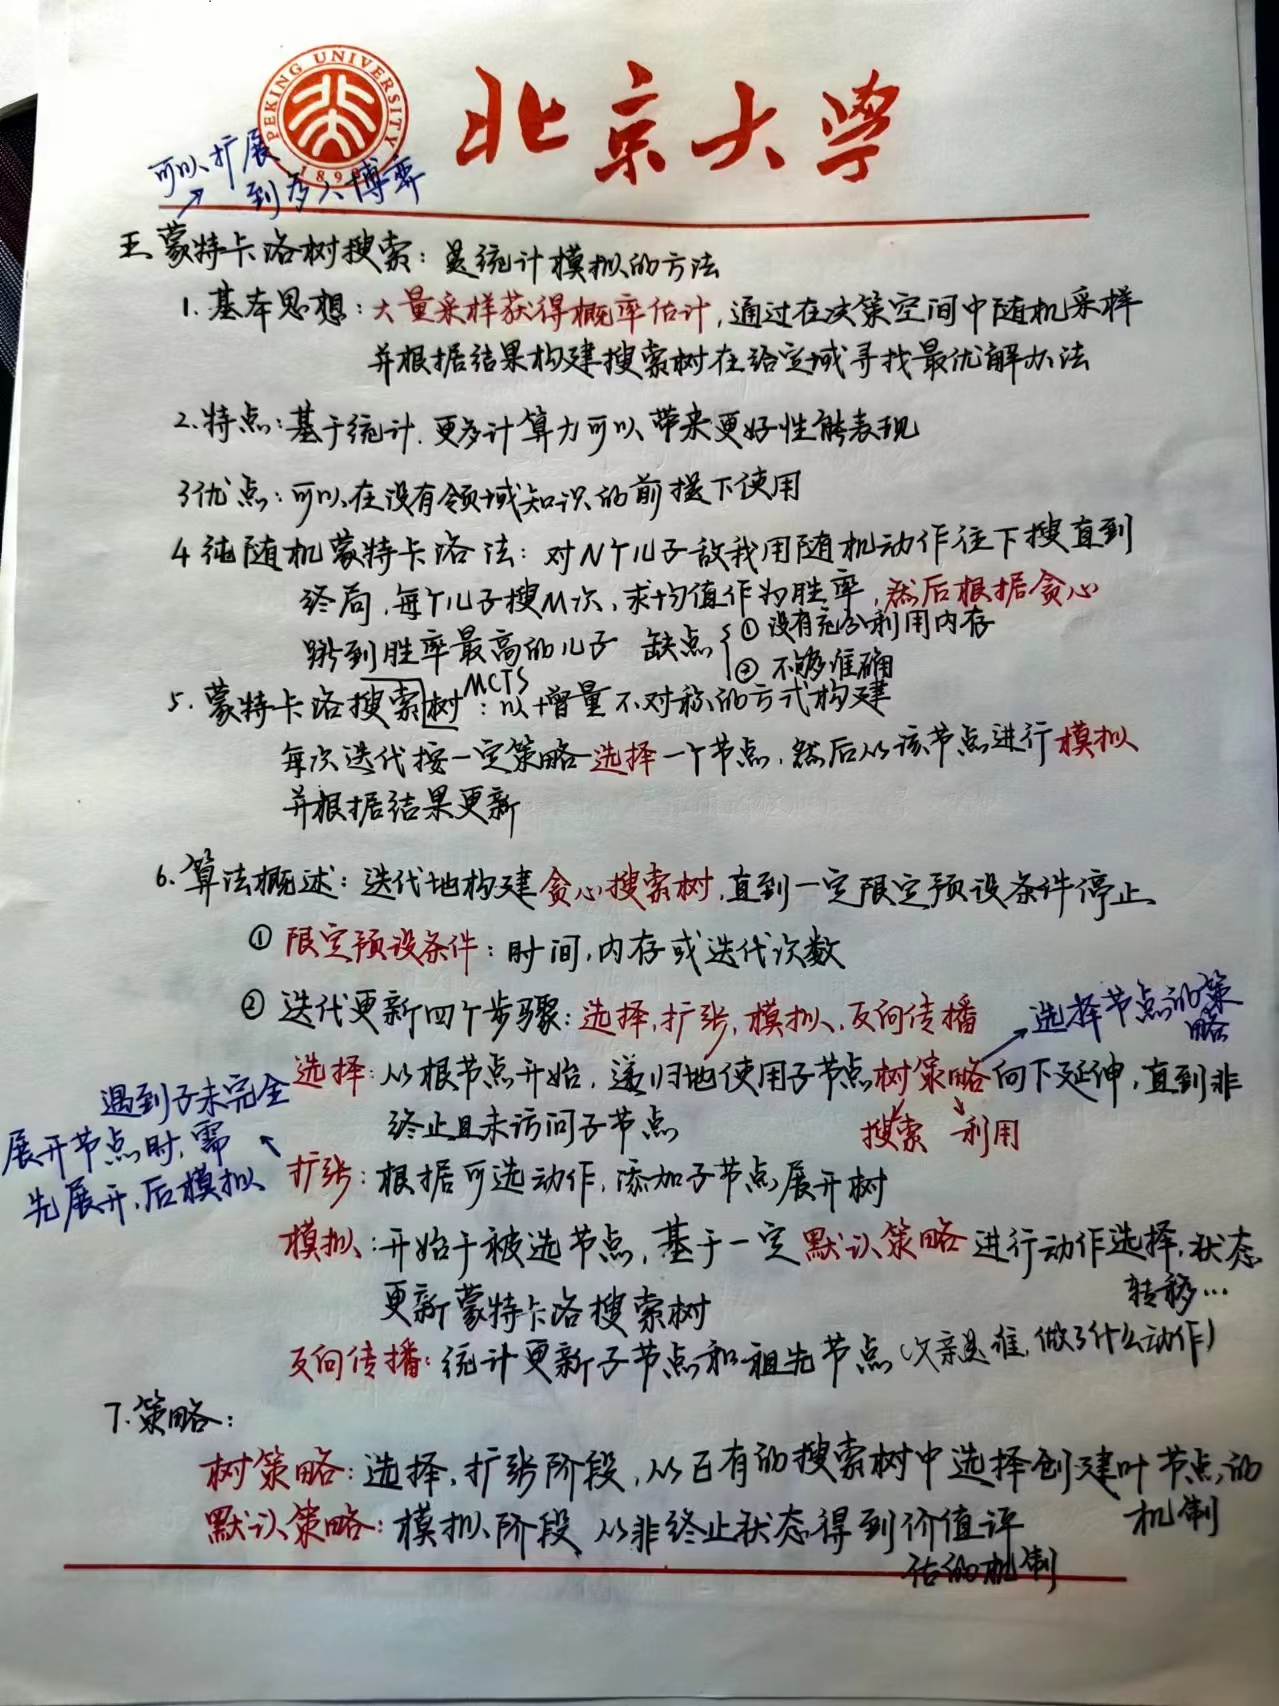 PEKING UNIVERSITY
1898
北京大学
可以扩展
到多人博弈
五、蒙特卡洛树搜索：是统计模拟的方法
1. 基本思想：大量采样获得概率估计，通过在决策空间中随机采样
并根据结果构建搜索树在给定域寻找最优解办法
2. 特点：基于统计．更多计算力可以带来更好性能表现
3优点：可以在没有领域知识的前提下使用
4 纯随机蒙特卡洛法：对N个儿子敌我用随机动作往下搜直到
终局，每个儿子搜M次，求均值作为胜率，然后根据贪心
跳到胜率最高的儿子 缺点 ① 没有充分利用内存
② 不够准确
MCTS
5. 蒙特卡洛搜索树：以增量不对称的方式构建
每次迭代按一定策略选择一个节点，然后从该节点进行模拟
并根据结果更新
6. 算法概述：迭代地构建贪心搜索树，直到一定限定预设条件停止
① 限定预设条件：时间，内存或迭代次数
② 迭代更新四个步骤：选择，扩张，模拟，反向传播
选择节点的策
略
选择：从根节点开始，递归地使用子节点树策略向下延伸，直到非
终止且未访问子节点
搜索 利用
遇到子未完全
展开节点时，需
先展开，后模拟
扩张：根据可选动作，添加子节点展开树
模拟：开始于被选节点，基于一定默认策略进行动作选择，状态
转移…
更新蒙特卡洛搜索树
反向传播：统计更新子节点和祖先节点（父亲是谁，做了什么动作）
7. 策略：
树策略：选择，扩张阶段，从已有的搜索树中选择创建叶节点的
机制
默认策略：模拟阶段 从非终止状态得到价值评
估的机制